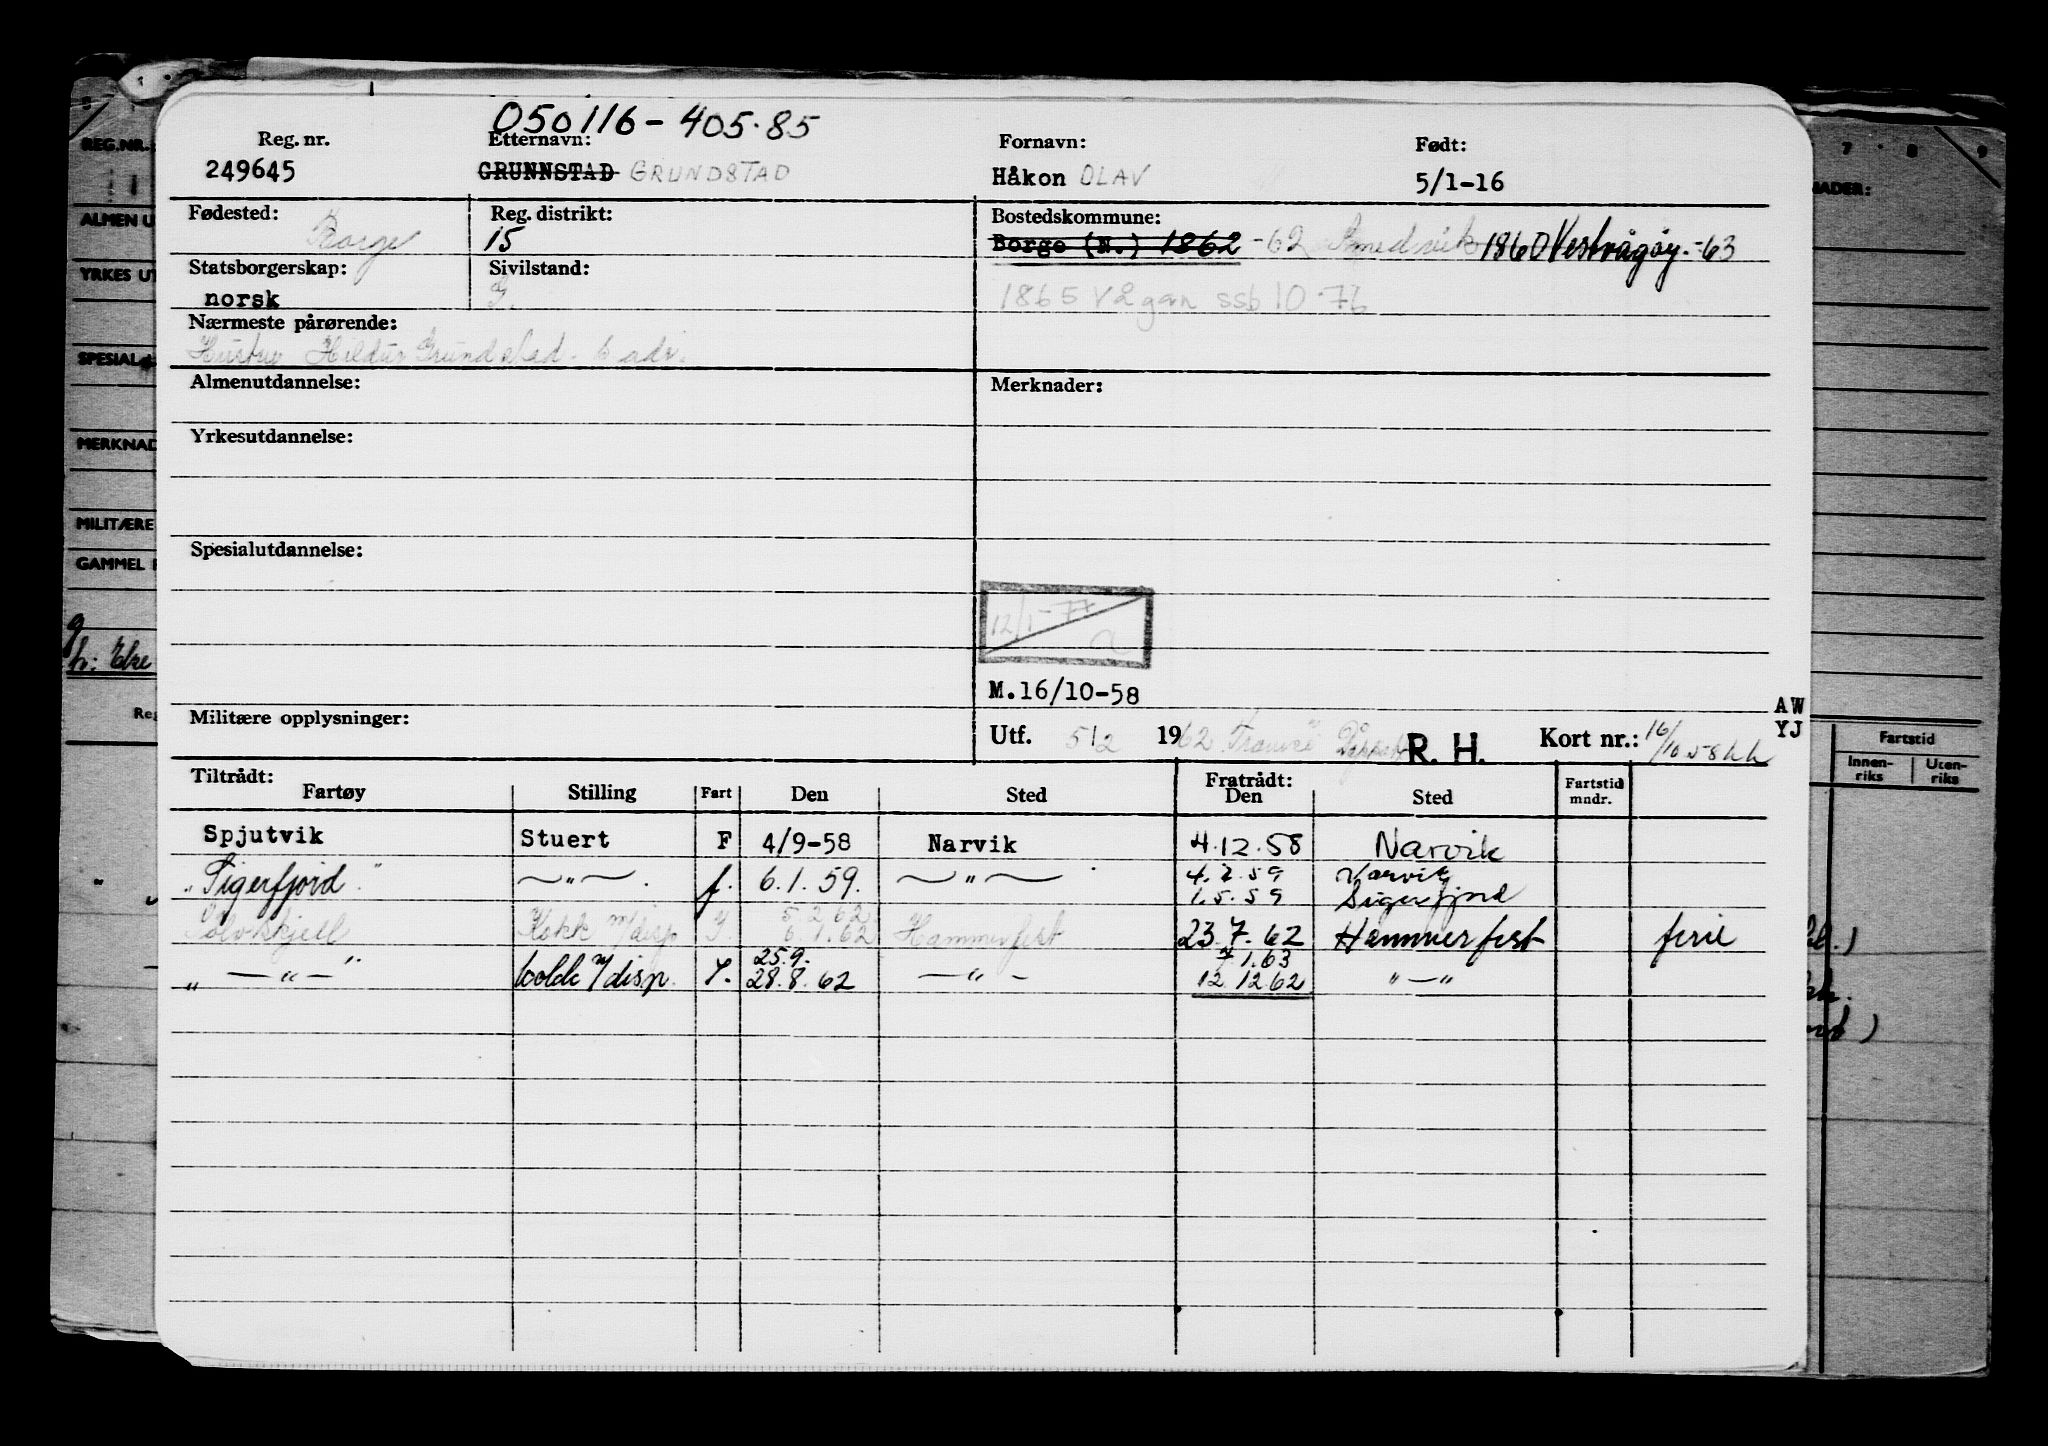 050116-405.85
Reg. nr. Etternavn: Fornavn: Født:
249645 GRUNNSTAD GRUNDSTAD Håkon OLAV 5/1-16
Fødested: Reg. distrikt: Bostedskommune:
Borge 15 Borge (N.) 1862 -62 1860 Vestvågøy.-63
Statsborgerskap: Sivilstand:
norsk G. 1865 Vågan ssb 10-76
Nærmeste pårørende:
Hustru Hildur Grundstad. b adr.
Almenutdannelse: Merknader:
Yrkesutdannelse:
Spesialutdannelse:
12/1-77
M.16/10-58
AW
Militære opplysninger: Utf. 5/2 1962 R. H. Kort nr.: 16/10 58 YJ
Tiltrådt: Fratrådt:
Fartøy Stilling Fart Den Sted Den Sted Fartstid mndr.
Spjutvik Stuert F 4/9-58 Narvik 4.12.58 Narvik
"Sigerfjord" —"— f. 6.1.59. —"— 4.2.59 Narvik
1.5.59 Sigerfjord
5.2.62
Kokk m/disp 6.1.62 Hammerfest 23.7.62 Hammerfest ferie
25.9. 7.1.63
" —"— " kokk m/disp. 28.8.62 —"— 12.12.62 "—"
REG.NR.
ALMEN U
YRKES UT
SPESIAL
MERKNAD
MILITÆRE
GAMMEL
Reg
7 8 9
NADER:
Fartstid
Innenriks Utenriks